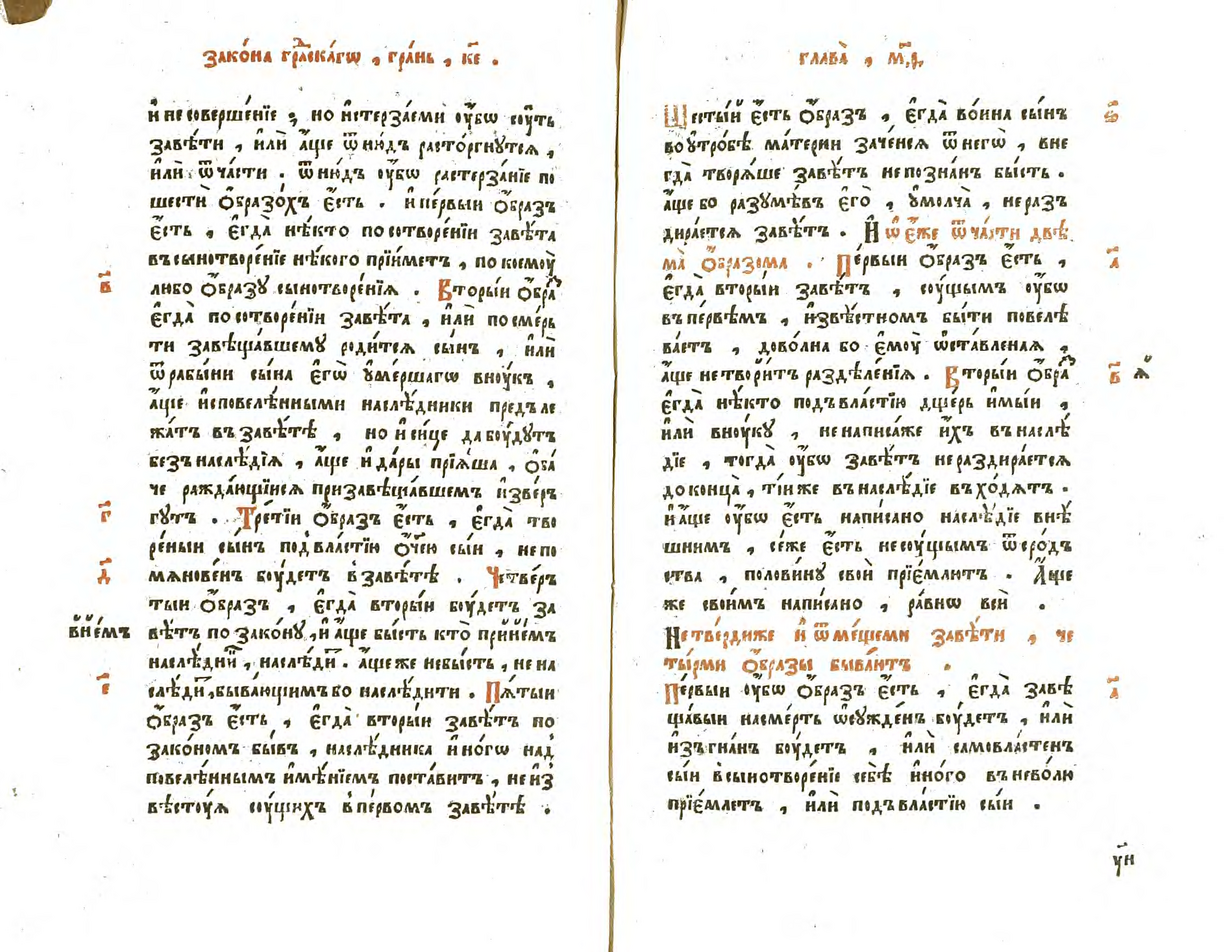 зако́на гра́дскагѡ , гра́нь , к҃е .
и҆ несовершє́нїє ; но и҆стерза́еми ᲂу҆́бѡ сꙋ́ть
завѣ́ти , и҆лѝ а҆́ще ѿню́дъ расто́ргнутся ,
и҆лѝ ѿча́сти . ѿню́дъ ᲂу҆́бѡ растерза́нїе по
шестѝ ѻ҆́бразохъ є҆́сть . и҆ пе́рвыи ѻ҆́бразъ
є҆́сть , є҆гда̀ нѣ́кто посотворе́нїи завѣ́та
въ сынотворе́нїе нѣ́кого прїи́метъ , по коемꙋ́
в҃
либо ѻ҆́бразꙋ сынотворе́нїѧ . Вторы́и ѻ҆́бра́
є҆гда̀ по сотворе́нїи завѣ́та , и҆лѝ по сме́рь
ти завѣща́вшемꙋ роди́тсѧ сы́нъ , и҆лѝ
ѿ рабы́ни сы́на є҆гѡ̀ ᲂу҆ме́ршагѡ внꙋ́къ ,
а҆́ще и҆ с повелѣ́нными наслѣ́дники предъ ле
жа́тъ въ завѣ́тѣ , но и҆ си́це да бꙋ́дꙋтъ
безъ наслѣ́дїѧ , а҆́ще и҆ да́ры прїѧ́ша , ѻ҆ба́
че ражда́ющїисѧ при завѣща́вшемъ и҆зве́р
г҃
гꙋтъ . Тре́тїи ѻ҆́бразъ є҆́сть , є҆гда̀ тво
ре́ныи сы́нъ под̾ вла́стїю ѻ҆́чею сы́и , не по
д҃
мѧнове́нъ бꙋ́детъ в̾ завѣ́тѣ . Четве́р
тыи ѻ҆́бразъ , є҆гда̀ вторы́и бꙋ́детъ за
вни́емъ
вѣ́тъ по зако́нꙋ , и҆ а҆́ще бы́сть кто̀ прїи́емъ
наслѣ́дни , наслѣ́ди . а҆́ще же небы́сть , не на
є҃
слѣ́ди , быва́ющимъ бо наслѣ́дити . Пѧ́тыи
ѻ҆́бразъ є҆́сть , є҆гда̀ вторы́и завѣ́тъ по
зако́номъ бы́въ , наслѣ́дника и҆но́гѡ над̾
повелѣ́ннымъ и҆мѣ́нїемъ поста́витъ , не и҆з̾
вѣ́стꙋѧ сꙋ́щихъ в̾ пе́рвомъ завѣ́тѣ .
глава̀ , м҃ѳ .
ѕ҃
Шесты́и є҆́сть ѻ҆́бразъ , є҆гда̀ во́ина сы́нъ
во ᲂу҆тро́бѣ ма́терни заче́нсѧ ѿ негѡ̀ , вне
гда̀ творѧ́ше завѣ́тъ не позна́нъ бы́сть .
а҆́ще бо разꙋмѣ́въ є҆го̀ , ᲂу҆молча̀ , не раз
дира́етсѧ завѣ́тъ . И҆ ѡ҆ є҆́же ѿ ча́сти двѣ
а҃
ма̀ ѻ҆́бразома . Пе́рвыи ѻ҆́бразъ є҆́сть ,
є҆гда̀ вторы́и завѣ́тъ , сꙋ́щымъ ᲂу҆́бѡ
въ пе́рвѣмъ , и҆звѣ́стномъ бы́ти повелѣ
ва́етъ , дово́лна бо є҆мꙋ̀ ѡ҆ста́вленаѧ ,
в҃ ѧ
а҆́ще не твори́тъ раздѣле́нїѧ . Вторы́и ѻ҆́бра́
є҆гда̀ нѣ́кто подъ вла́стїю дще́рь и҆мы́и ,
и҆лѝ внꙋ́кꙋ , не написа́же и҆́хъ въ наслѣ́
дїе , тогда̀ ᲂу҆́бѡ завѣ́тъ не раздира́етсѧ
до конца̀ , ті́и же въ наслѣ́дїе въхо́дѧтъ .
и҆ а҆́ще ᲂу҆́бѡ є҆́сть написано наслѣ́дїе внѣ́
шнимъ , се́же є҆́сть не сꙋ́щымъ ѿ сро́дъ
ства , полови́нꙋ свои̇̀ прїе́млютъ . А҆́ще
же свои́мъ написано , ра́внѡ всѝ .
Не тве́рди же и҆ ѿме́щеми завѣ́ти , че
ты́рми ѻ҆́бразы быва́ютъ .
а҃
Пе́рвыи ᲂу҆́бѡ ѻ҆́бразъ є҆́сть , є҆гда̀ завѣ
ща́выи на сме́рть ѡ҆сꙋжде́нъ бꙋ́детъ , и҆лѝ
и҆зъгна́нъ бꙋ́детъ , и҆лѝ самовла́стенъ
сы́и в̾ сынотворе́нїе себѣ̀ и҆но́го въ нево́лю
прїе́млетъ , и҆лѝ подъ вла́стїю сы́и .
ун҃